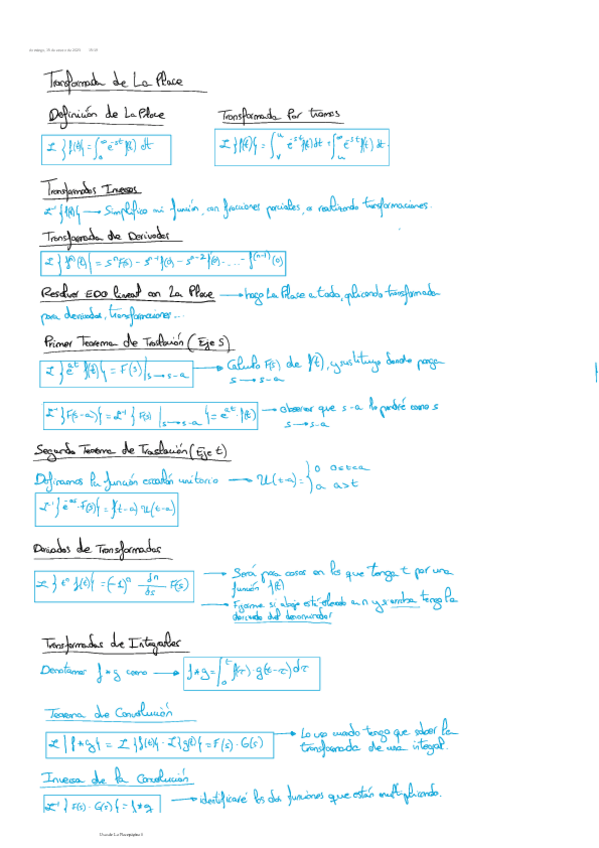 Transformada de La Place
Definición de La Place
ℒ{f(t)} = ∫₀^∞ e^-st f(t) dt
Transformada Por tramos
ℒ{f(t)} = ∫_v^u e^-st f(t) dt + ∫_u^∞ e^-st f(t) dt
Transformadas Inversas
ℒ⁻¹{f(s)} → Simplifico mi función, con fracciones parciales, o realizando transformaciones.
Transformada de Derivadas
ℒ{fⁿ(t)} = sⁿF(s) - sⁿ⁻¹f(0) - sⁿ⁻²f'(0) - ... - f⁽ⁿ⁻¹⁾(0)
Resolver EDO lineal con La Place → hago La Place a toda, aplicando transformada
para derivadas, transformaciones...
Primer Teorema de Traslación (Eje S)
ℒ{e^at f(t)} = F(s)|s→s-a → Calculo F(s) de f(t), y sustituyo donde ponga
s → s-a
ℒ⁻¹{F(s-a)} = ℒ⁻¹{F(s)|s→s-a} = e^at · f(t) → observar que s-a lo pondré como s
s → s-a
Segundo Teorema de Traslación (Eje t)
Definimos la función escalón unitario → U(t-a) = { 0 0≤t<a
a a>t
ℒ⁻¹{e^-as · F(s)} = f(t-a) U(t-a)
Derivadas de Transformadas
ℒ{tⁿ f(t)} = (-1)ⁿ dn/ds F(s)
→ Será para casos en los que tenga t por una
función f(t)
→ Fijarme si abajo está elevado a n y si arriba tengo la
derivada del denominador
Transformadas de Integrales
Denotamos f*g como → f*g = ∫₀^t f(τ) · g(t-τ) dτ
Teorema de Convolución
ℒ{f*g} = ℒ{f(t)} · ℒ{g(t)} = F(s) · G(s) → Lo uso cuando tengo que saber la
transformada de una integral.
Inversa de la Convolución
ℒ⁻¹{F(s) · G(s)} = f*g → identificaré las dos funciones que están multiplicando.